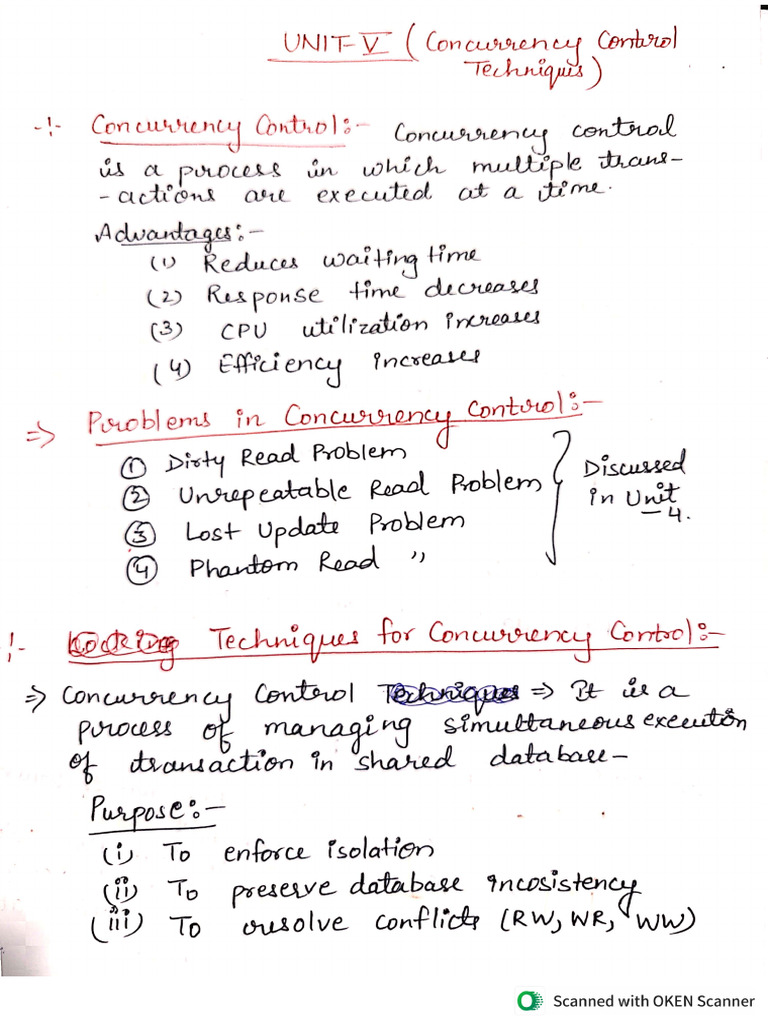 UNIT-V (Concurrency Control
Techniquis)
-:- Concurrency Control:- Concurrency control
is a process in which multiple trans-
-actions are executed at a time.
Advantages:-
(1) Reduces waiting time
(2) Response time decreases
(3) CPU utilization increases
(4) Efficiency increases
=> Problems in Concurrency Control:-
① Dirty Read Problem
② Unrepeatable Read Problem
③ Lost Update Problem
④ Phantom Read "
Discussed
in Unit
-4.
-:- Locking Techniques for Concurrency Control:-
=> Concurrency Control Techniques => It is a
process of managing simultaneous execution
of transaction in shared database-
Purpose:-
(i) To enforce isolation
(ii) To preserve database incosistency
(iii) To resolve conflicts (RW, WR, WW)
Scanned with OKEN Scanner